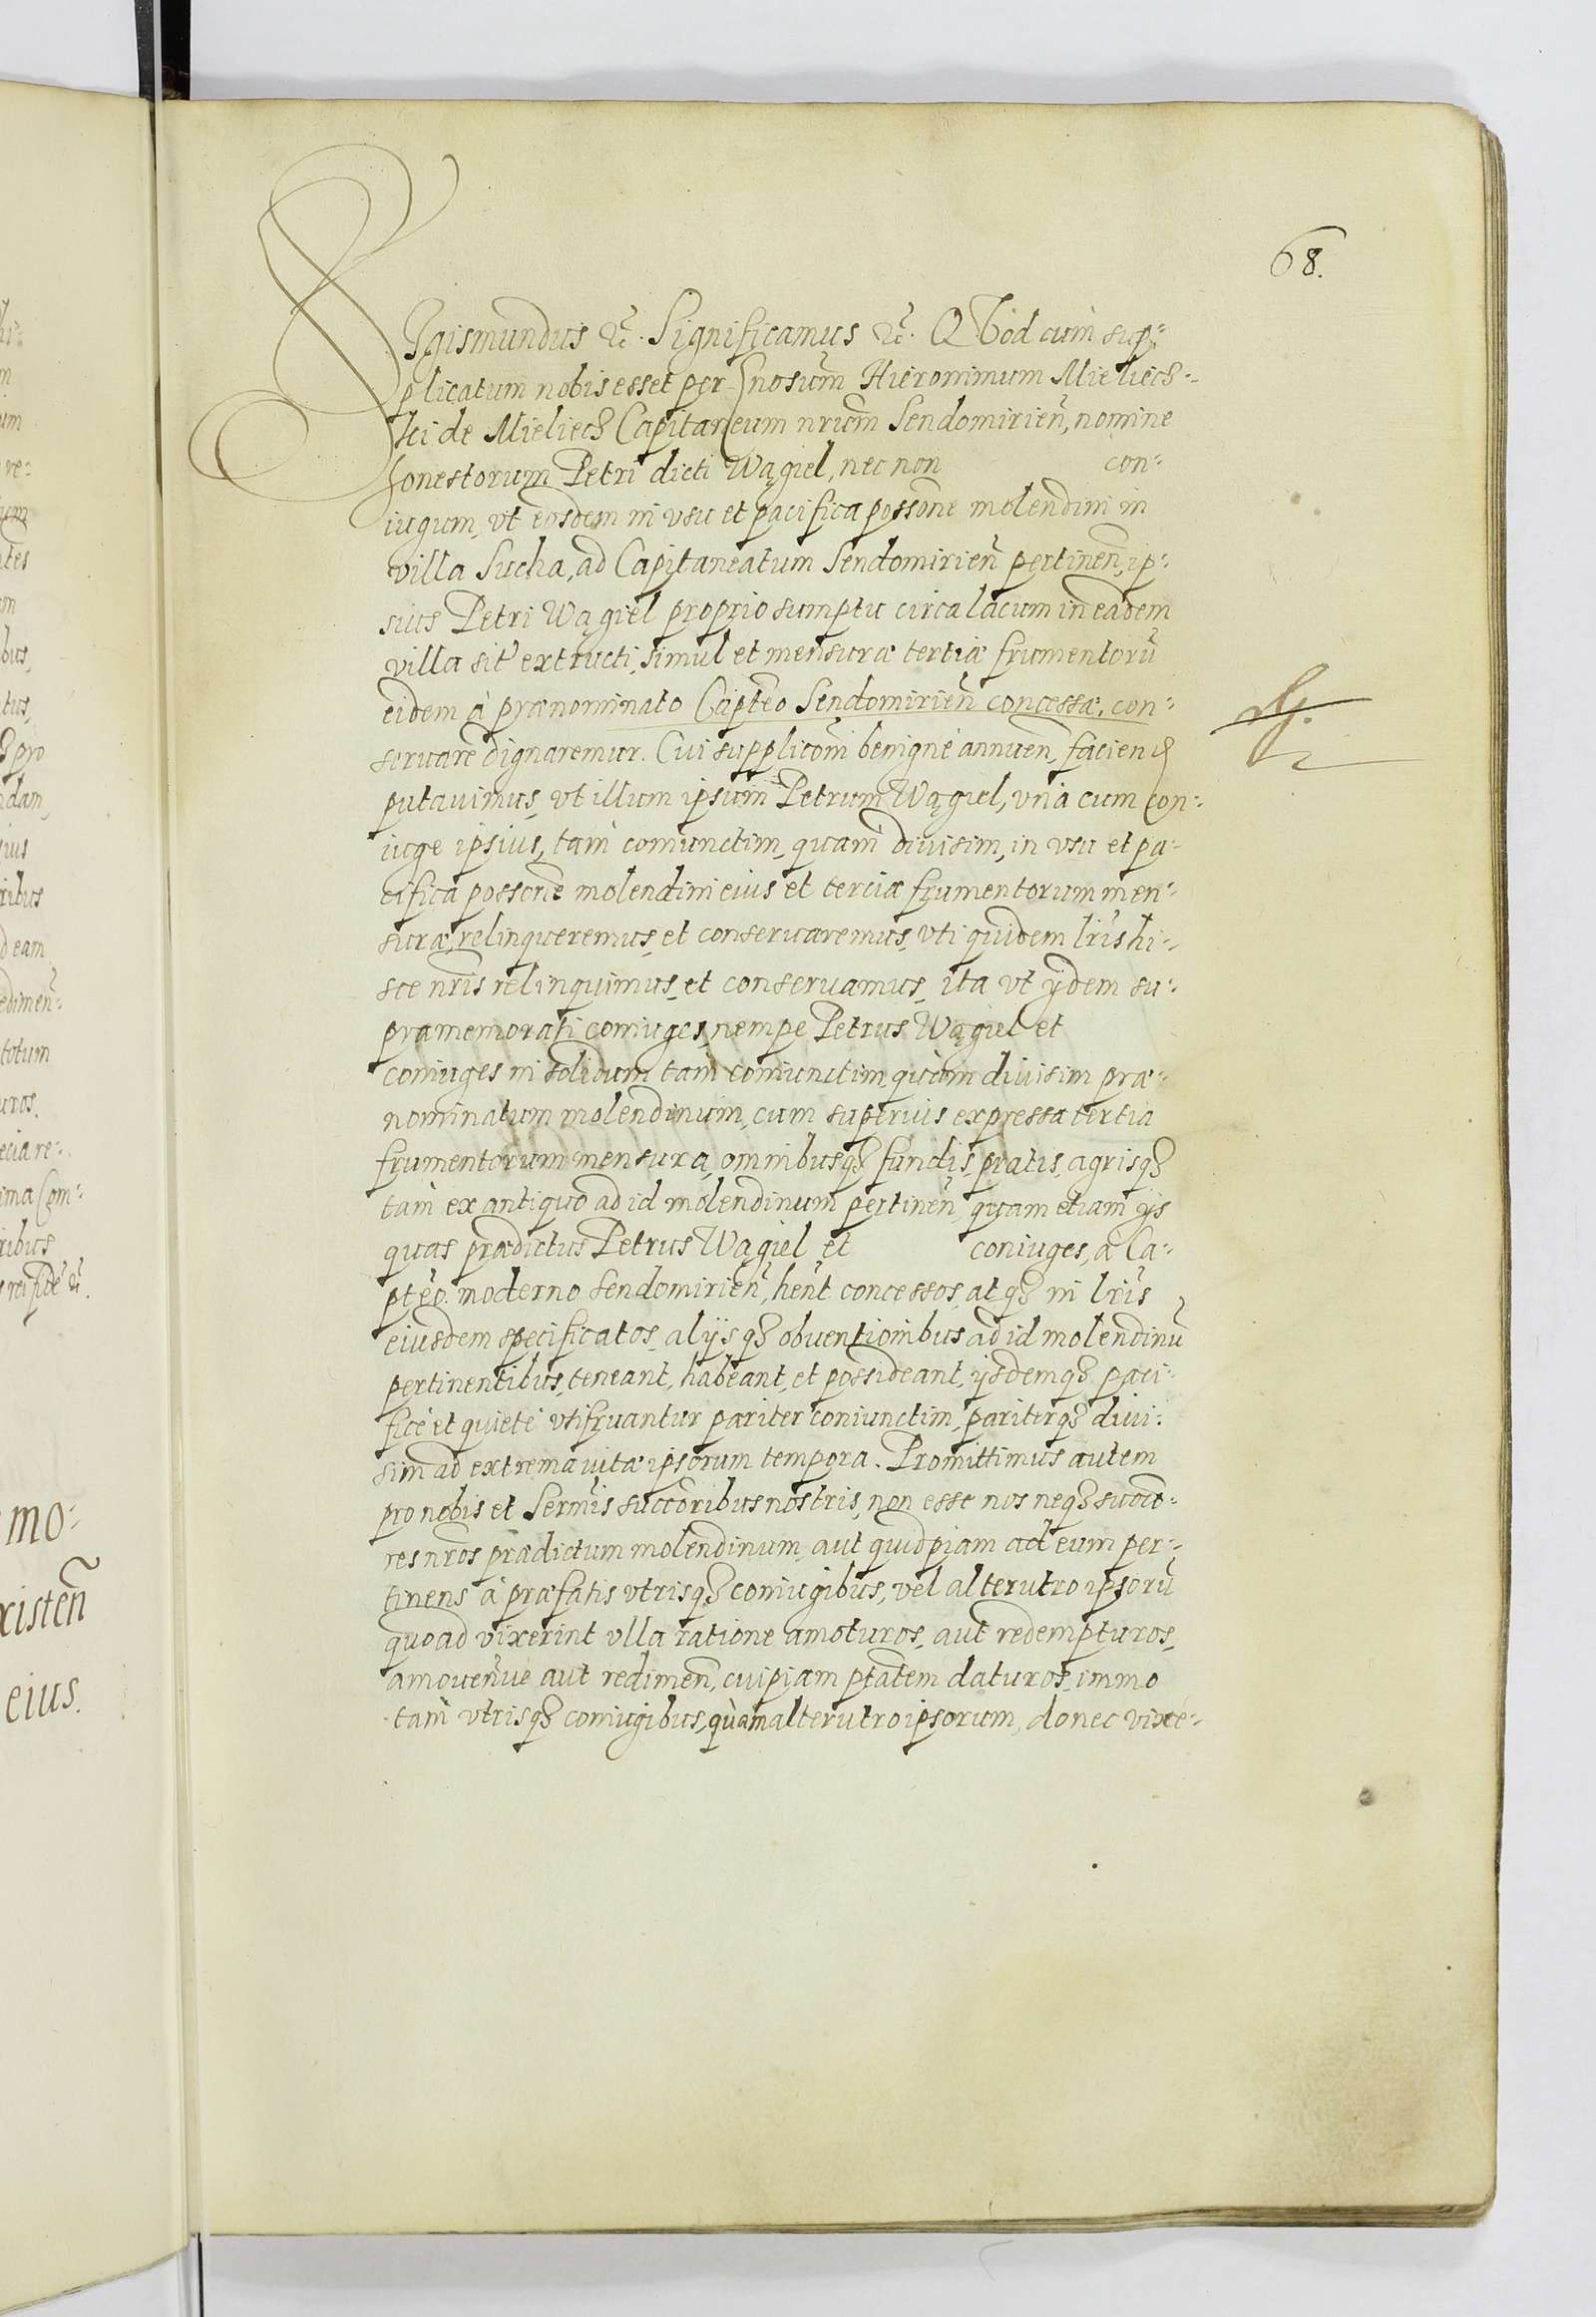 68.
SIgismundus &c̃. Significamus &c̃. QVod cum sup-
plicatum nobis esset per Gnosum Hieronimum Mieliecz-
ki de Mieliecz Capitaneum nrum Sendomirieñ, nomine
honestorum Petri dicti Wągiel, nec non con-
iugum, vt eosdem in vsu et pacifica possone molendini in
villa Sucha, ad Capitaneatum Sendomirieñ pertineñ, ip-
sius Petri Wągiel proprio sumptu circa lacum in eadem
villa sit extructi, simul et mensuræ tertiæ frumentorū
eidem à prænominato Capteo Sendomirieñ concessæ, con-
seruare dignaremur. Cui supplicõni benigné annueñ, facien
putauimus, vt illum ipsum Petrum Wągiel, vnà cum con-
iuge ipsius, tam coniunctim, quam diuisim, in vsu et pa-
cifica possone molendini eius et terciæ frumentorum men-
suræ, relinqueremus, et conseruaremus, vti quidem lris hi-
sce nris relinquimus, et conseruamus, ita vt ijdem su-
pramemorati coniuges, nempe Petrus Wągiel et
coniuges in solidum tam coniunctim quàm diuisim præ-
nominatum molendinum, cum superius expressa tertia
frumentorum mensura, omnibusq3 fundis, pratis, agrisq3
tam ex antiquo ad id molendinum pertineñ, quam etiam ijs
quas prædictus Petrus Wągiel et coniuges, a Ca-
pteo moderno Sendomirieñ, hent concessos, atq3 in lris
eiusdem specificatos, alijsq3 obuentionibus ad id molendinū
pertinentibus, teneant, habeant, et possideant, ijsdemq3 paci-
ficè et quietè vtifruantur pariter coniunctim, pariterq3 diui-
sim ad extrema vitæ ipsorum tempora. Promittimus autem
pro nobis et Sermis succoribus nostris, non esse nos neq3 succe-
res nros prædictum molendinum, aut quidpiam ad eum per-
tinens à præfatis vtrisq3 coniugibus, vel alterutro ipsorū
quoad vixerint vlla ratione amoturos, aut redempturos,
amoueñve aut redimeñ, cuipiam ptatem daturos, immo
tam vtrisq3 coniugibus, quàm alterutro ipsorum, donec vixe-